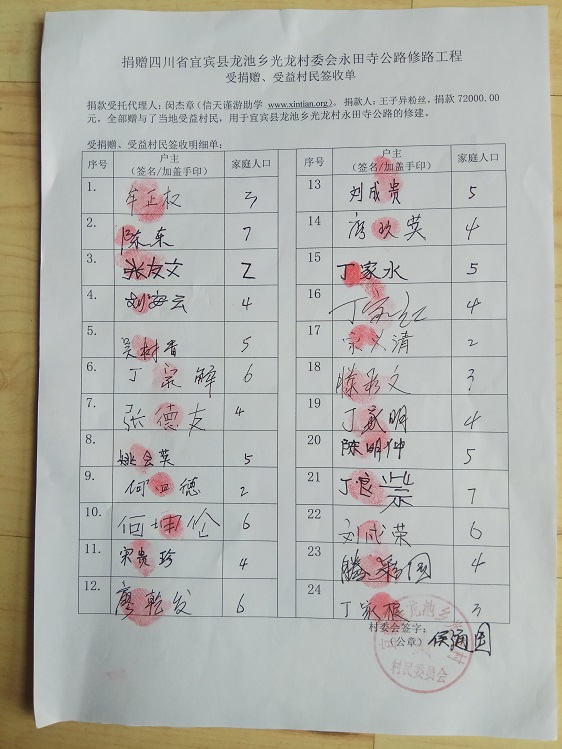 捐赠四川省宜宾县龙池乡光龙村委会永田寺公路修路工程
受捐赠、受益村民签收单
捐款受托代理人：闵杰章（信天谨游助学 www.xintian.org）。 捐款人：王子异粉丝，捐款 72000.00
元，全部赠与了当地受益村民，用于宜宾县龙池乡光龙村永田寺公路的修建。
受捐赠、受益村民签收明细单：
序号 户主（签名/加盖手印） 家庭人口
1. 牟正权 3
2. 陈东 7
3. 张友文 2
4. 刘海云 4
5. 吴树香 5
6. 丁宗解 6
7. 张德友 4
8. 姚会英 5
9. 何四德 2
10. 何坤伦 6
11. 宋贵珍 4
12. 廖乾发 6
序号 户主（签名/加盖手印） 家庭人口
13 刘成贵 5
14 廖玖英 4
15 丁家水 5
16 丁家红 4
17 宗义清 2
18 滕彩文 3
19 丁成明 4
20 陈明坤 5
21 丁良崇 7
22 刘成荣 6
23 滕彩国 4
24 丁家根 3
村委会签字：
（公章） 侯涌国
龙池乡光龙村
村民委员会